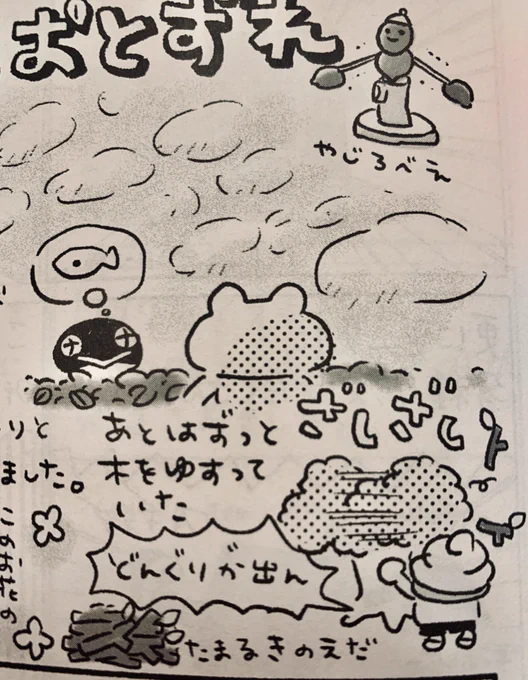 おとずれ
やじろべえ
りと
ました。
あとはずっと
木をゆすって
いた
ざしざし
どんぐりが出ん
たまるきのえだ